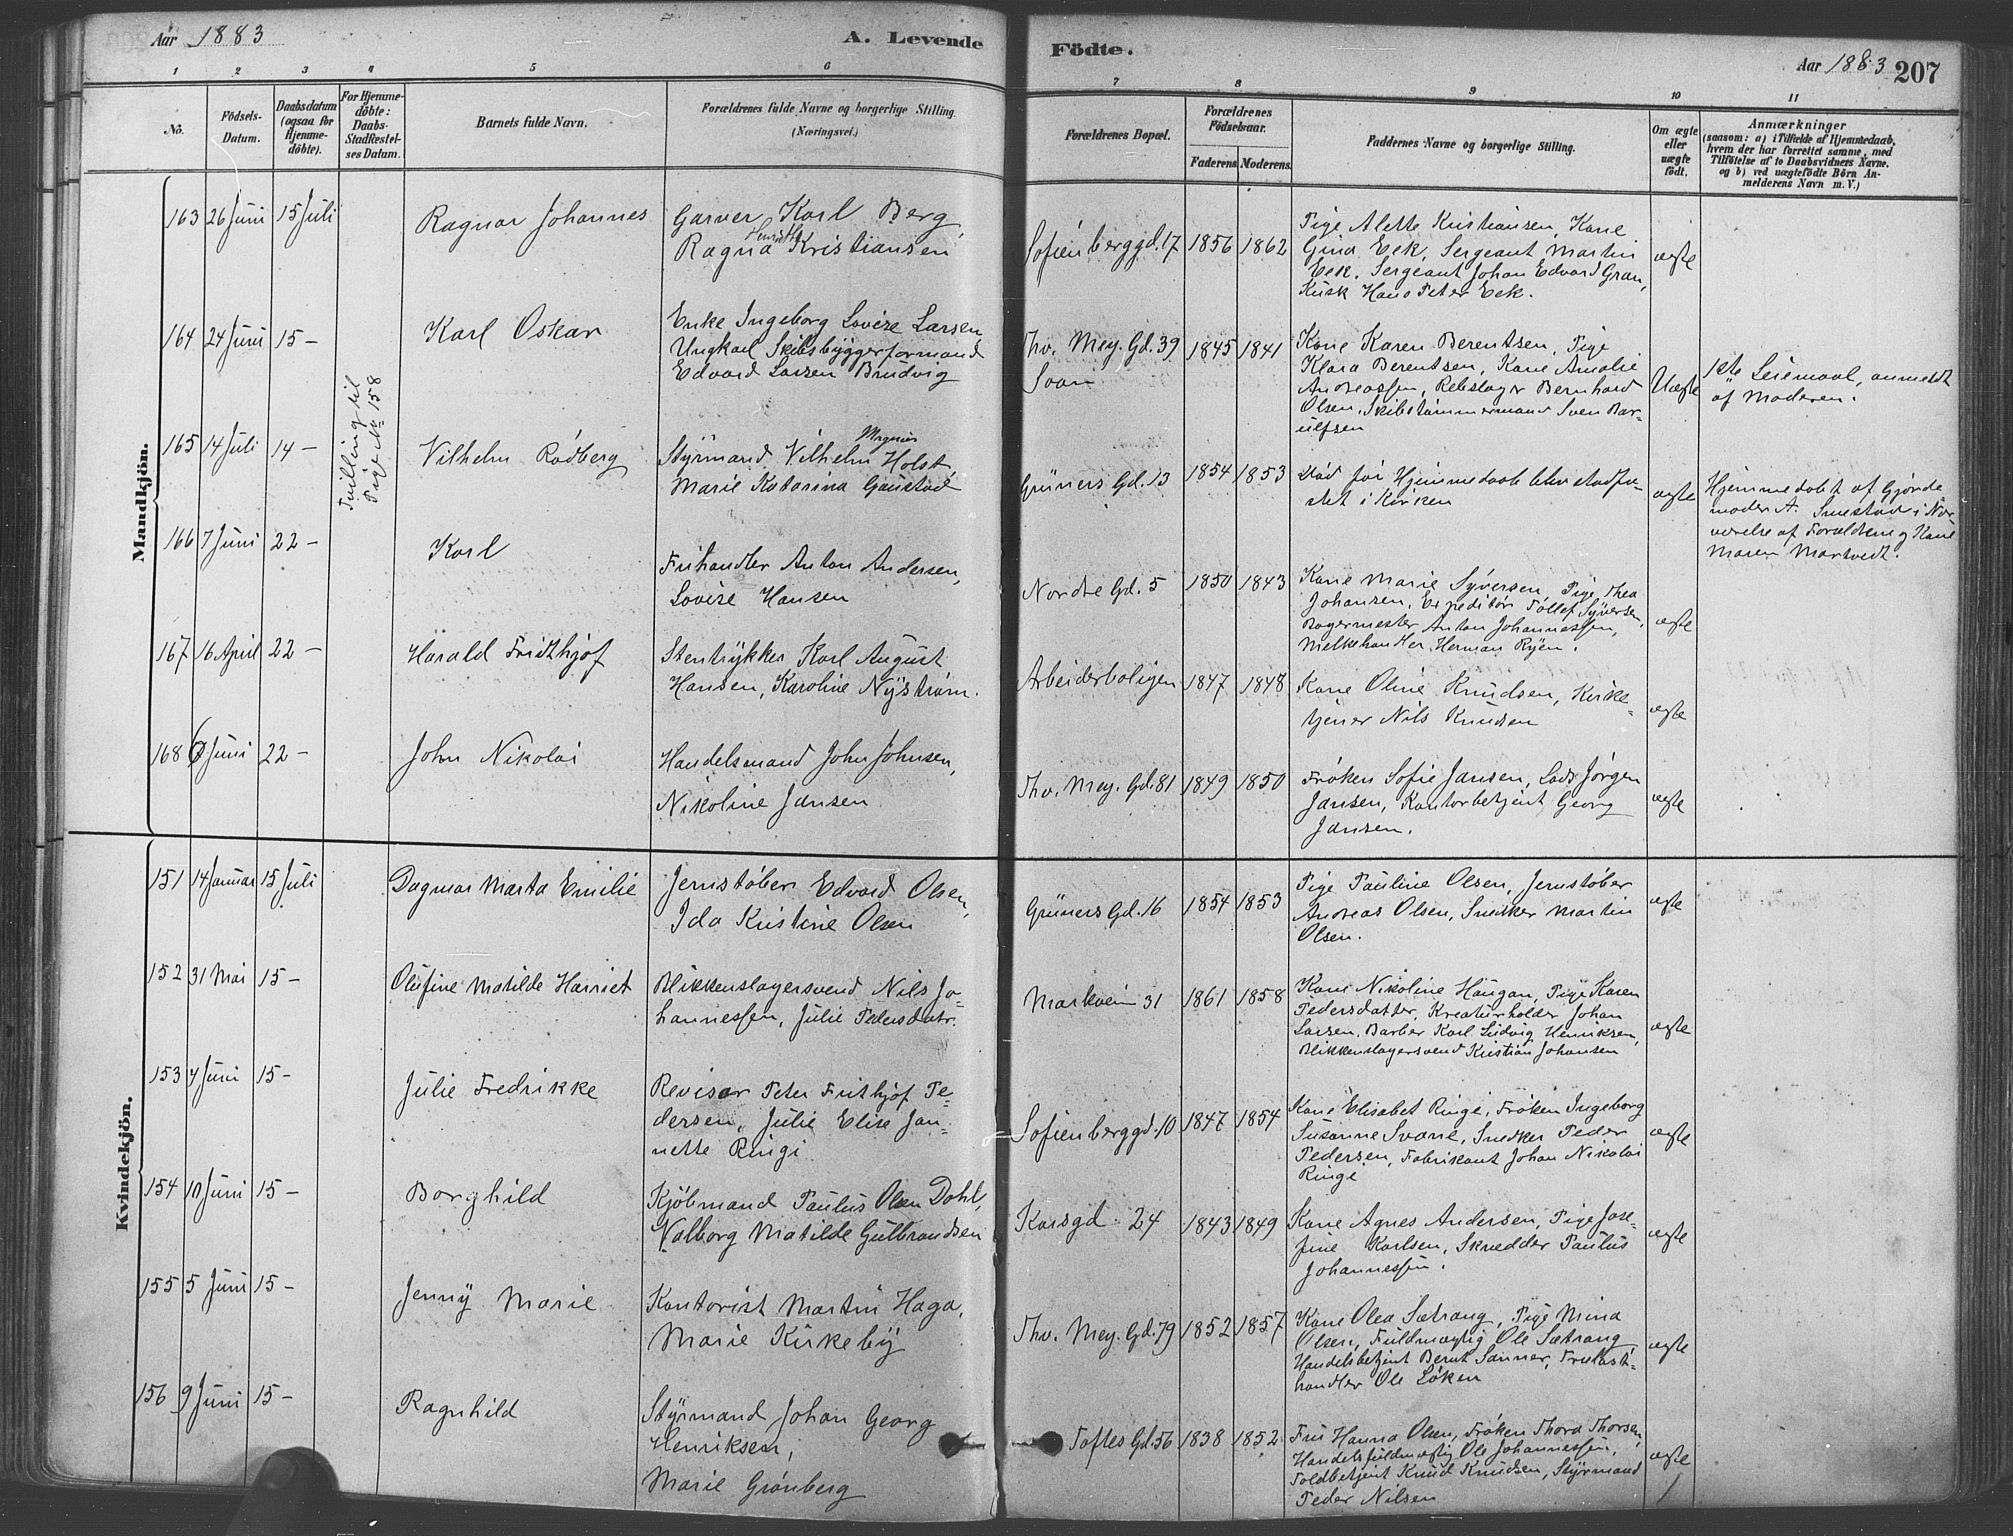 Aar 1883
A. Levende
Födte.
Aar 1883
207
1 2 3 4 5 6 7 8 9 10 11
No.
Födsels-
Datum.
Daabsdatum
(ogsaa for
Hjemme-
döbte).
For Hjemme-
döbte:
Daabs-
Stadfæstel-
ses Datum.
Barnets fulde Navn.
Forældrenes fulde Navne og borgerlige Stilling.
(Næringsvei.)
Forældrenes Bopæl.
Forældrenes
Födselsaar.
Faderens. Moderens.
Faddernes Navne og borgerlige Stilling.
Om ægte
eller
uægte
födt.
Anmærkninger
(saasom: a) i Tilfælde af Hjemmedaab,
hvem der har forrettet samme, med
Tilföielse af to Daabsvidners Navne.
og b) ved uægtefödte Börn An-
melderens Navn m. V.)
Mandkjön.
163 26 Juni 15 Juli
Ragnar Johannes
Garver Karl Berg,
Henriette
Ragna Kristiansen
Sofienberggd. 17 1856 1862
Pige Alette Kristiansen, Kone
Gina Eek, Sergeant Martin
Eek, Sergeant Johan Edvard Gran,
Kusk Hans Peter Eek.
ægte
164 24 Juni 15 –
Karl Oskar
Enke Ingeborg Lovise Larsen
Ungkarl Skibsbyggerformand
Edvard Larsen Brudvig
Thv. Mey. Gd. 39 1845 1841
Kone Karen Berentsen, Pige
Klara Berentsen, Kone Amalie
Andreassen, Rebslager Bernhard
Olsen, Skibstømmermand Sven Bar-
ulfsen
Uægte
1ste Leiemaal, anmeldt
af Moderen.
165 14 Juli 14 –
Tvilling til
Pige 158
Vilhelm Rødberg
Magnus
Styrmand Vilhelm Holst,
Marie Katarina Gaustad
Grüners Gd. 13 1854 1853
Død før Hjemmedaab blev stadfæ-
stet i Kirken
ægte
Hjemmedøbt af Gjorde-
moder A. Smestad i Nær-
værelse af Forældrene og Kone
Maren Martvedt.
166 7 Juni 22 –
Karl
Frihandler Anton Andersen,
Lovise Hansen
Nordre Gd. 5 1850 1843
Kone Marie Syversen, Pige Thea
Johansen, Expeditør Tollef Syversen,
Bagermester Anton Johannessen,
Melkehandler Herman Ryen.
ægte
167 16 April 22 –
Harald Fridthjof
Stentrykker Karl August
Hansen, Karoline Nystrøm.
Arbeiderboligen 1847 1848
Kone Oline Knudsen, Kirke-
tjener Nils Knudsen
ægte
168 6 Juni 22 –
John Nikolai
Handelsmand John Johnsen,
Nikoline Jansen
Thv. Mey. Gd. 81 1849 1850
Frøken Sofie Jansen, Lods Jørgen
Jansen, Kontorbetjent Georg
Jansen.
ægte
Kvindekjön.
151 14 Januar 15 Juli
Dagmar Marta Emilie
Jernstøber Edvard Olsen,
Ida Kristine Olsen
Grüners Gd. 16 1854 1853
Pige Pauline Olsen, Jernstøber
Andreas Olsen, Snedker Martin
Olsen.
ægte
152 31 Mai 15 –
Olufine Matilde Harriet
Blikkenslagersvend Nils Jo-
hannessen, Julie Pedersdatr.
Markveien 31 1861 1858
Kone Nikoline Haugan, Pige Karen
Pedersdatter, Kreaturholder Johan
Larsen, Barber Karl Ludvig Henriksen,
Blikkenslagersvend Kristian Johansen
ægte
153 4 Juni 15 –
Julie Fredrikke
Revisor Peter Frithjof Pe-
dersen, Julie Elise Jan-
nette Ringi
Sofienberggd. 10 1847 1854
Kone Elisabet Ringi, Frøken Ingeborg
Susanne Svane, Snedker Peder
Pedersen, Fabrikant Johan Nikolai
Ringi
ægte
154 10 Juni 15 –
Borghild
Kjøbmand Paulus Olsen Dahl,
Valborg Matilde Gulbrandsen
Korsgd. 24 1843 1849
Kone Agnes Andersen, Pige Jose-
fine Karlsen, Skrædder Paulus
Johannessen.
ægte
155 5 Juni 15 –
Jenny Marie
Kontorist Martin Haga,
Marie Kirkeby
Thv. Mey. Gd. 79 1852 1857
Kone Olea Sætrang, Pige Mina
Olsen, Fuldmægtig Ole Sætrang
Handelsbetjent Bernt Sanner,
handler Ole Løken
ægte
156 9 Juni 15 –
Ragnhild
Styrmand Johan Georg
Henriksen,
Marie Grønberg
Toftes Gd. 56 1838 1852
Fru Hanna Olsen, Frøken Thora Thorsen,
Handelsfuldmægtig Ole Johannessen,
Toldbetjent Knud Knudsen, Styrmand
Peder Nilsen
ægte